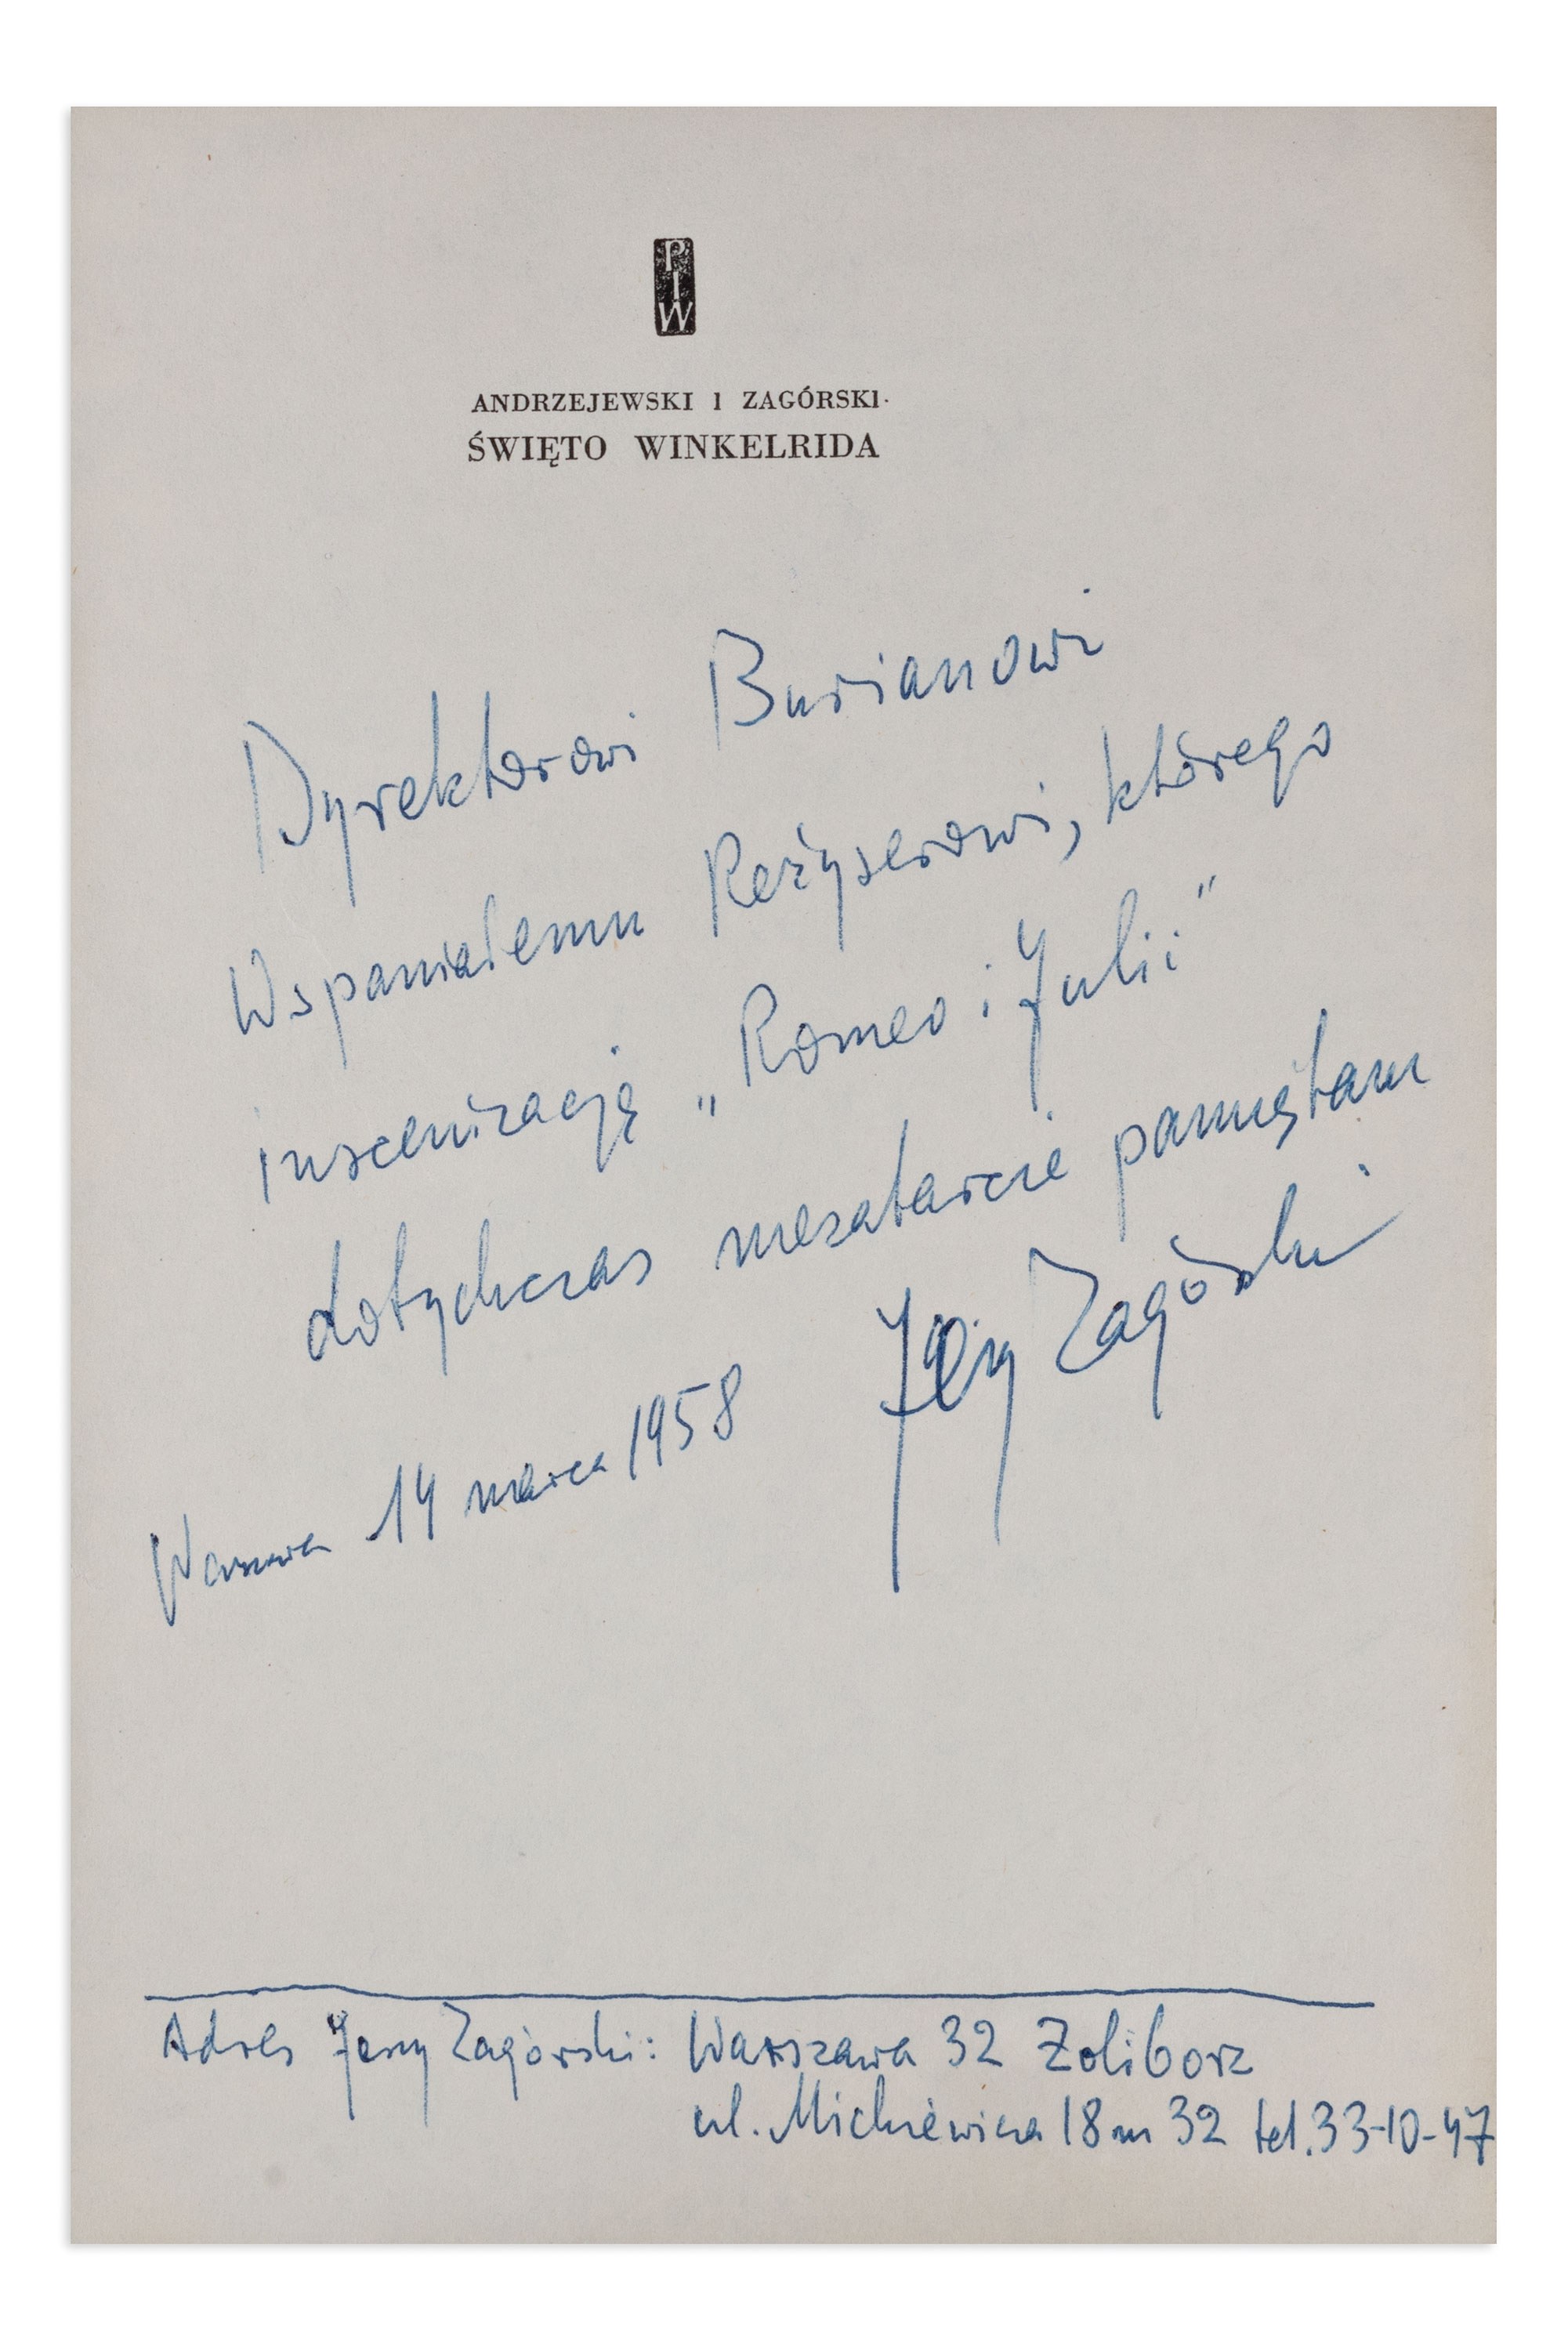 P
I
W
ANDRZEJEWSKI I ZAGÓRSKI
ŚWIĘTO WINKELRIDA
Dyrektorowi Burianowi
Wspaniałemu Reżyserowi, którego
inscenizację „Romeo i Julii"
dotychczas niezatarcie pamiętam
Jerzy Zagórski
Warszawa 14 marca 1958
Adres Jerzy Zagórski: Warszawa 32 Żoliborz
ul. Mickiewicza 18 m 32 tel. 33-10-47